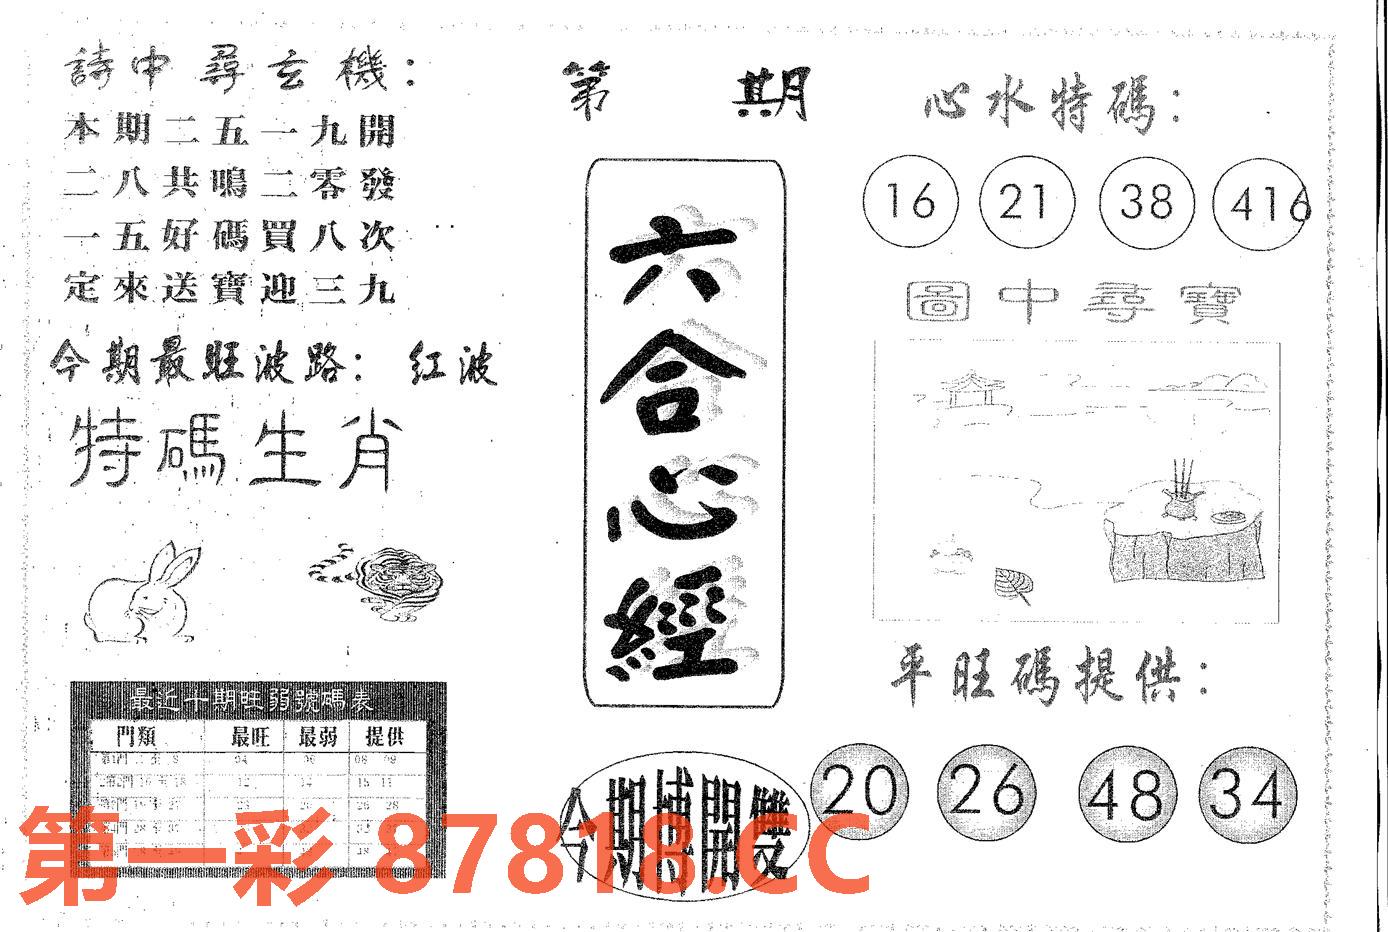 詩中尋玄機：
本期二五一九開
二八共鳴二零發
一五好碼買八次
定來送寶迎三九
今期最旺波路： 红波
特碼生肖
最近十期旺弱號碼表
門類 最旺 最弱 提供
04 06 08 09
12 14 15 11
第 期
六合心經
今期博開雙
心水特碼：
16 21 38 416
圖中尋寶
平旺碼提供：
20 26 48 34
第一彩 87818.CC